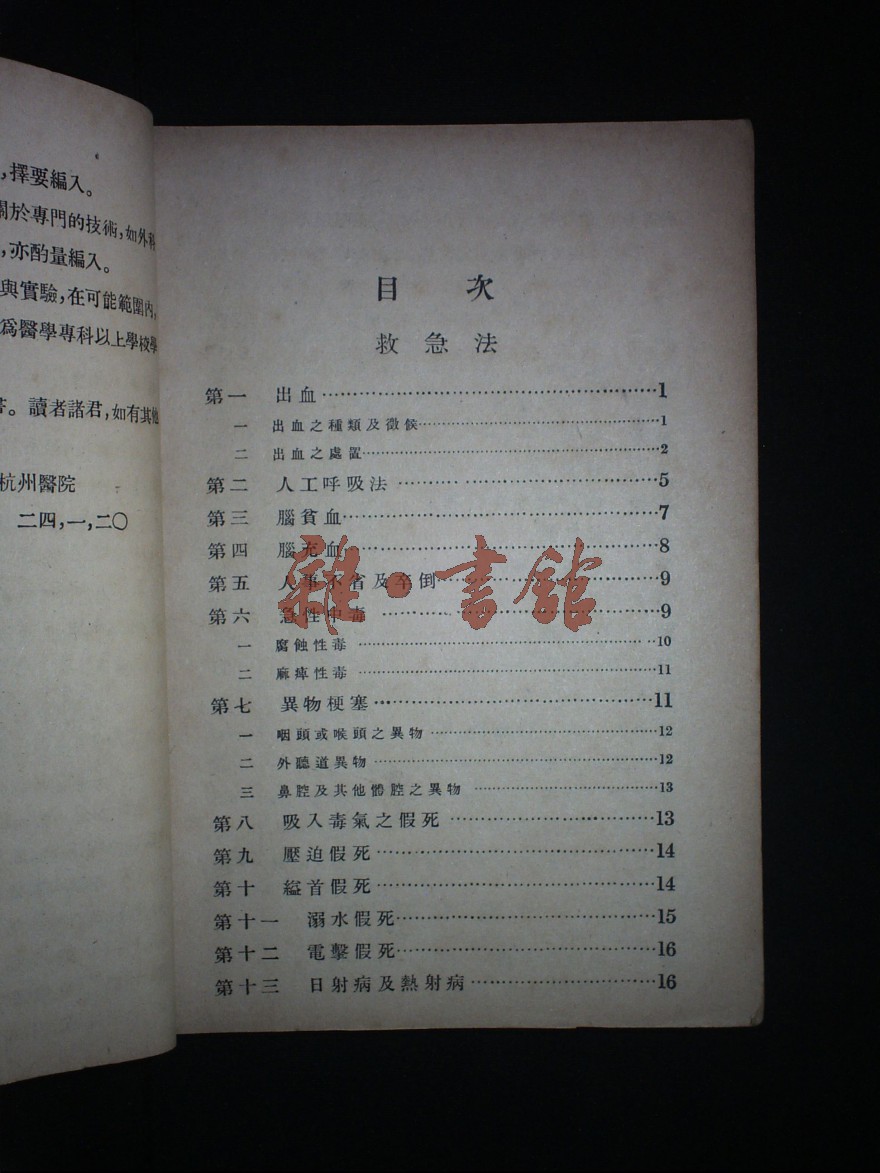 ，擇要編入。
關於專門的技術，如外科
，亦酌量編入。
與實驗，在可能範圍內，
爲醫學專科以上學校學
。讀者諸君，如有其他
杭州醫院
二四，一，二〇
目次
救急法
第一 出血……1
一 出血之種類及徵候……1
二 出血之處置……2
第二 人工呼吸法……5
第三 腦貧血……7
第四 腦充血……8
第五 人事不省及卒倒……9
第六 急性中毒……9
一 腐蝕性毒……10
二 麻痺性毒……11
第七 異物梗塞……11
一 咽頭或喉頭之異物……12
二 外聽道異物……12
三 鼻腔及其他體腔之異物……13
第八 吸入毒氣之假死……13
第九 壓迫假死……14
第十 縊首假死……14
第十一 溺水假死……15
第十二 電擊假死……16
第十三 日射病及熱射病……16
雜·書館